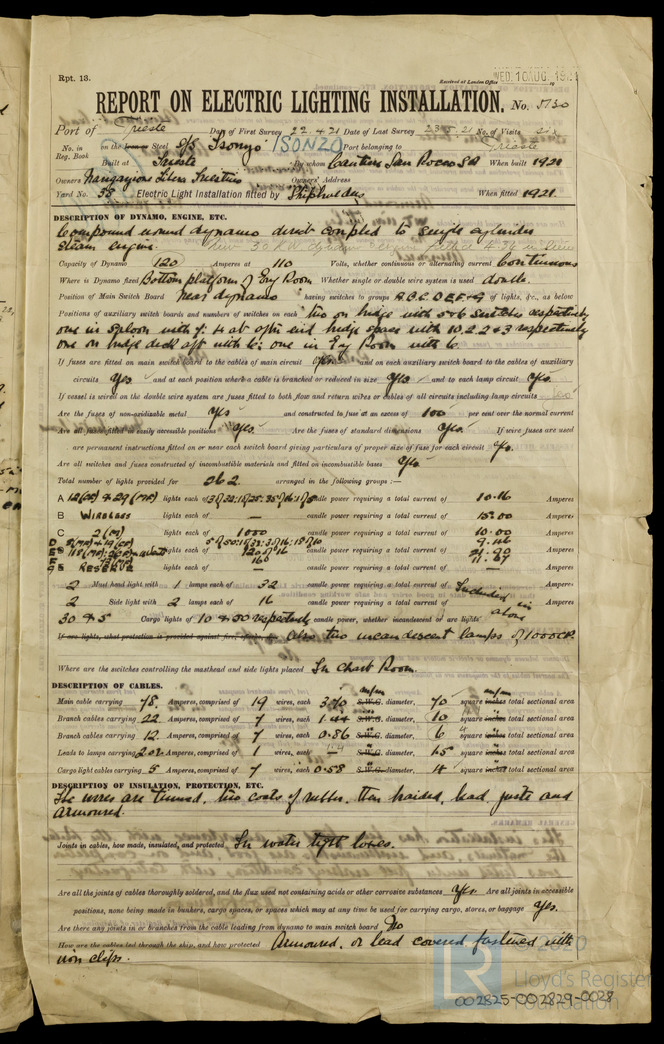 Rpt. 13.
Received at London Office WED. 10 AUG. 1921
REPORT ON ELECTRIC LIGHTING INSTALLATION. No. 5730
Port of Trieste Date of First Survey 22.4.21 Date of Last Survey 23.5.21 No. of Visits six
No. in Reg. Book on the Iron or Steel S/S Isonzo ISONZO Port belonging to Trieste
Built at Trieste By whom Cantiere San Rocco SA When built 1921
Owners Navigazione Libera Triestina Owners' Address
Yard No. 35 Electric Light Installation fitted by Shipbuilders When fitted 1921
DESCRIPTION OF DYNAMO, ENGINE, ETC.
Compound wound dynamo direct coupled to single cylinder
steam engine.
Capacity of Dynamo 120 Amperes at 110 Volts, whether continuous or alternating current Continuous
Where is Dynamo fixed Bottom platform of Eng Room Whether single or double wire system is used double.
Position of Main Switch Board near dynamo having switches to groups A B C D E F & G of lights, &c., as below
Positions of auxiliary switch boards and numbers of switches on each two on bridge with 5 & 6 switches respectively
one in saloon with 7: 4 at after end bridge space with 10, 2, 2 & 3 respectively
one on bridge deck aft with 6: one in Eng Room with 6.
If fuses are fitted on main switch board to the cables of main circuit yes and on each auxiliary switch board to the cables of auxiliary
circuits Yes and at each position where a cable is branched or reduced in size yes and to each lamp circuit yes.
If vessel is wired on the double wire system are fuses fitted to both flow and return wires or cables of all circuits including lamp circuits yes
Are the fuses of non-oxidizable metal yes and constructed to fuse at an excess of 100 per cent over the normal current
Are all fuses fitted in easily accessible positions yes. Are the fuses of standard dimensions yes. If wire fuses are used
are permanent instructions fitted on or near each switch board giving particulars of proper size of fuse for each circuit yes.
Are all switches and fuses constructed of incombustible materials and fitted on incombustible bases yes.
Total number of lights provided for 262 arranged in the following groups :—
A 12 (CF) & 29 (MF) lights each of candle power requiring a total current of 10.16 Amperes
B Wireless lights each of — candle power requiring a total current of 15.00 Amperes
C 2 (M) lights each of 1000 candle power requiring a total current of 10.00 Amperes
D lights each of candle power requiring a total current of 9.46 Amperes
E lights each of candle power requiring a total current of 21.90
F 160 11.67
G RESERVE — —
2 Mast head light with 1 lamps each of 32 candle power requiring a total current of Included in Amperes
2 Side light with 2 lamps each of 16 candle power requiring a total current of above Amperes
30 & 5 Cargo lights of 10 & 50 respectively candle power, whether incandescent or arc lights
If arc lights, what protection is provided against fire, sparks, &c. also two incandescent lamps of 1000 CP.
Where are the switches controlling the masthead and side lights placed In Chart Room.
DESCRIPTION OF CABLES.
Main cable carrying 78. Amperes, comprised of 19 wires, each S.W.G. diameter, 70 square inches total sectional area
Branch cables carrying 22 Amperes, comprised of 7 wires, each S.W.G. diameter, 10 square inches total sectional area
Branch cables carrying 12. Amperes, comprised of 7 wires, each 0.86 S.W.G. diameter, 6 square inches total sectional area
Leads to lamps carrying Amperes, comprised of 1 wires, each S.W.G. diameter, 1.5 square inches total sectional area
Cargo light cables carrying 5 Amperes, comprised of 7 wires, each 0.58 S.W.G. diameter, 4 square inches total sectional area
DESCRIPTION OF INSULATION, PROTECTION, ETC.
The wires are tinned, two coats of rubber, then braided, lead, jute and
armoured.
Joints in cables, how made, insulated, and protected In water tight boxes.
Are all the joints of cables thoroughly soldered, and the flux used not containing acids or other corrosive substances Yes. Are all joints in accessible
positions, none being made in bunkers, cargo spaces, or spaces which may at any time be used for carrying cargo, stores, or baggage Yes.
Are there any joints in or branches from the cable leading from dynamo to main switch board No
How are the cables led through the ship, and how protected Armoured, or lead covered, fastened with
iron clips.
LR © 2020
Lloyd's Register
Foundation
002825-002829-0028